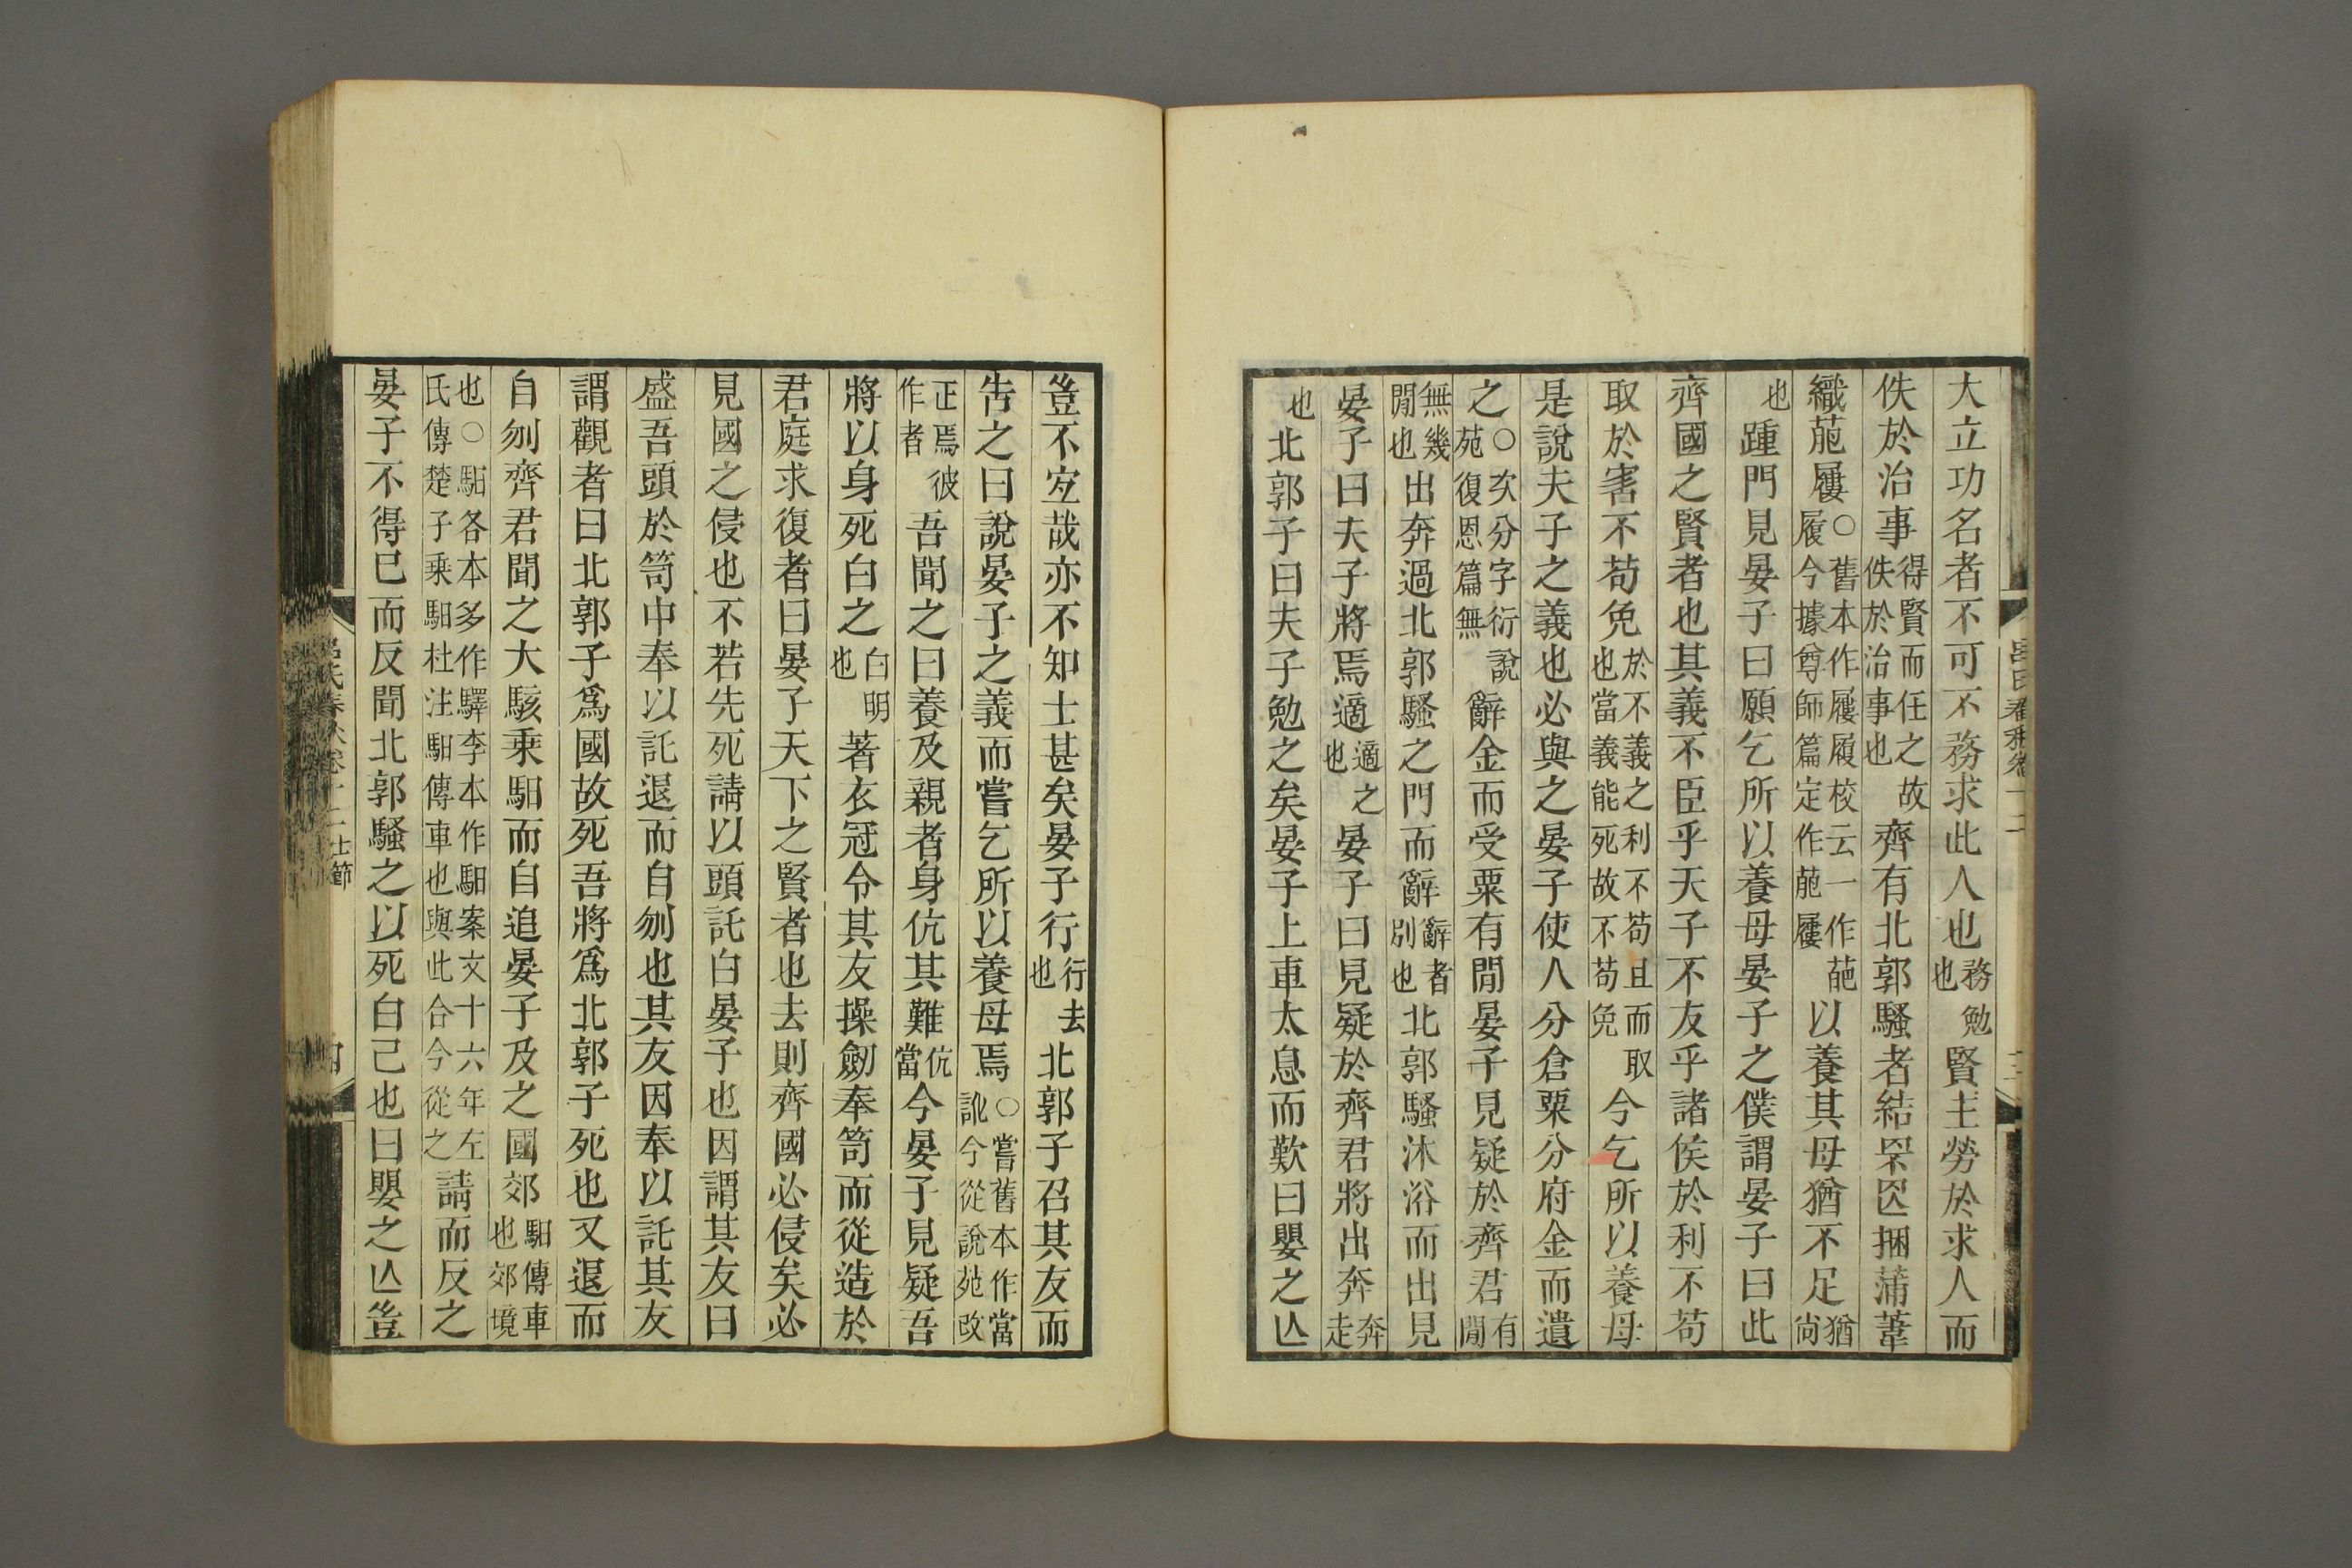 大立功名者不可不務求此人也務勉也賢主勞於求人而
佚於治事得賢而任之故佚於治事也齊有北郭騷者結罘罔捆蒲葦
織萉屨○舊本作屨履校云一作葩履今據尊師篇定作萉屨以養其母猶不足猶尚
也踵門見晏子曰願乞所以養母晏子之僕謂晏子曰此
齊國之賢者也其義不臣乎天子不友乎諸侯於利不苟
取於害不苟免於不義之利不苟且而取也當義能死故不苟免今乞所以養母
是說夫子之義也必與之晏子使人分倉粟分府金而遺
之○次分字衍說苑復恩篇無辭金而受粟有閒晏子見疑於齊君有閒
無幾閒也出奔過北郭騷之門而辭辭者別也北郭騷沐浴而出見
晏子曰夫子將焉適適之也晏子曰見疑於齊君將出奔奔走
也北郭子曰夫子勉之矣晏子上車太息而歎曰嬰之亾
豈不宐哉亦不知士甚矣晏子行行去也北郭子召其友而
告之曰說晏子之義而嘗乞所以養母焉○嘗舊本作當訛今從說苑改
正焉彼作者吾聞之曰養及親者身伉其難伉當今晏子見疑吾
將以身死白之白明也著衣冠令其友操劒奉笥而從造於
君庭求復者曰晏子天下之賢者也去則齊國必侵矣必
見國之侵也不若先死請以頭託白晏子也因謂其友曰
盛吾頭於笥中奉以託退而自刎也其友因奉以託其友
謂觀者曰北郭子爲國故死吾將爲北郭子死也又退而
自刎齊君聞之大駭乘馹而自追晏子及之國郊馹傳車也郊境
也○馹各本多作驛李本作馹案文十六年左氏傳楚子乘馹杜注馹傳車也與此合今從之請而反之
晏子不得已而反聞北郭騷之以死白己也曰嬰之亾豈
士節
四